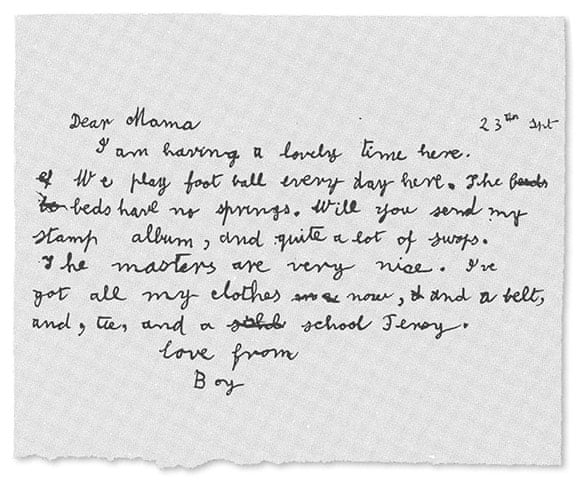 Dear Mama 23th Sept
I am having a lovely time here.
We play foot ball every day here. The beds
beds have no springs. Will you send my
stamp album, and quite a lot of swops.
The masters are very nice. I've
got all my clothes now, and a belt,
and, tie, and a school Jersy.
love from
Boy